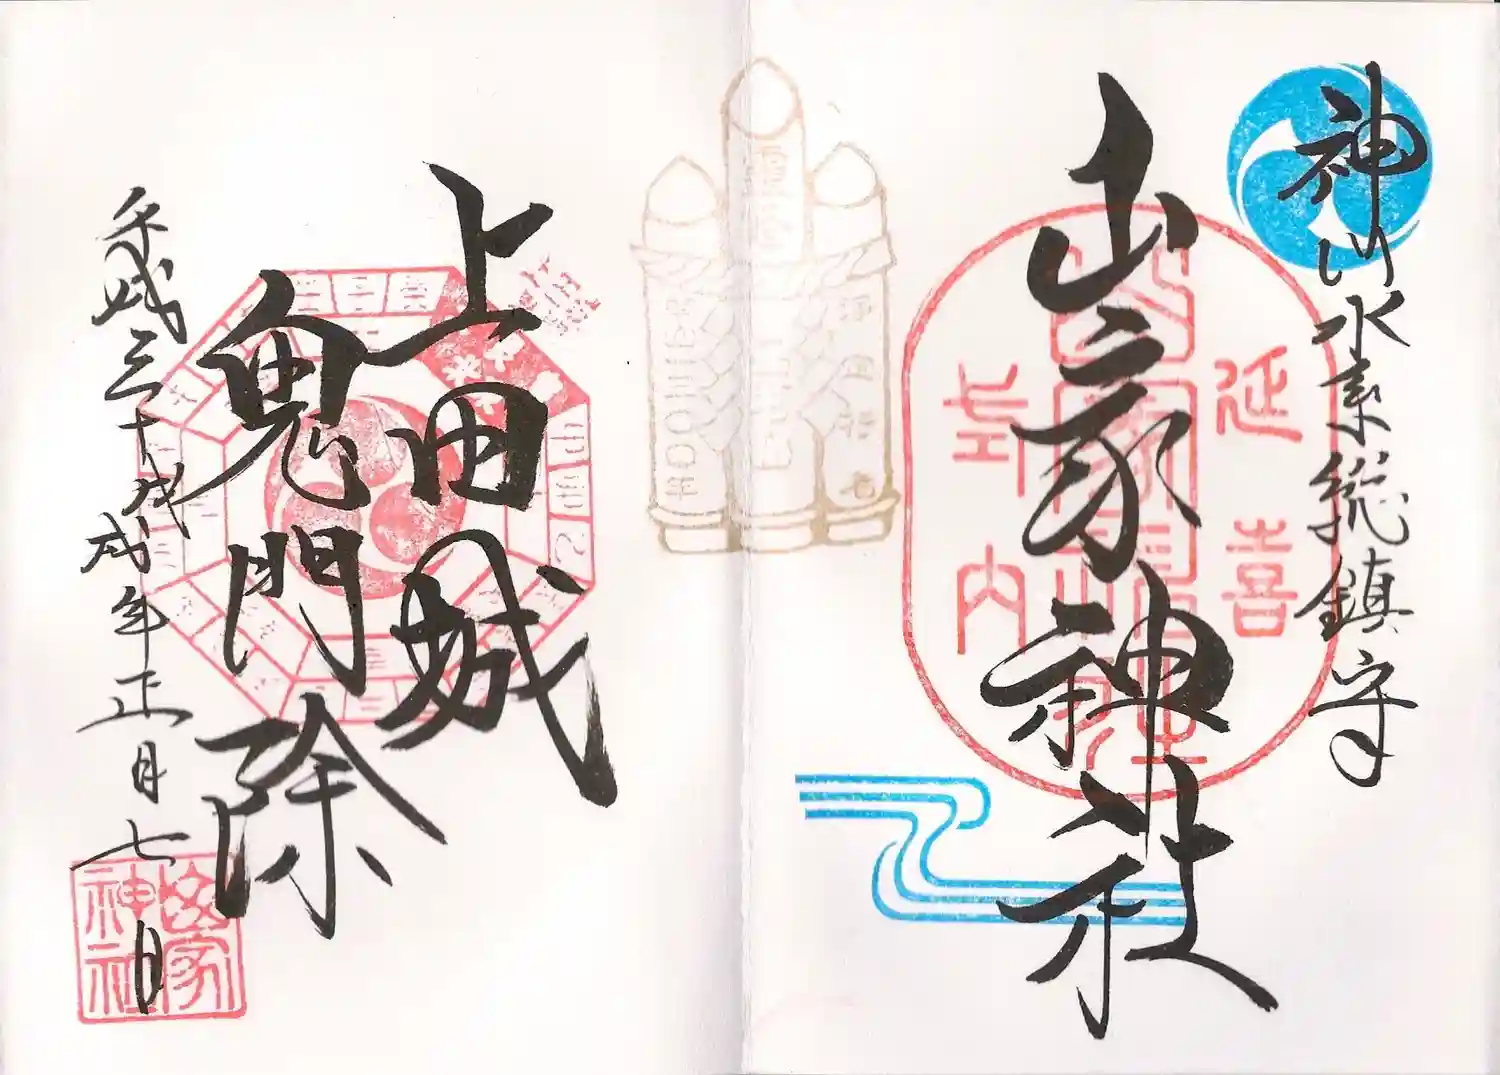 神川水系総鎮守
山家神社
延喜
式内
上田城
鬼門除
平成三十戊
戌年正月七日
山家
神社